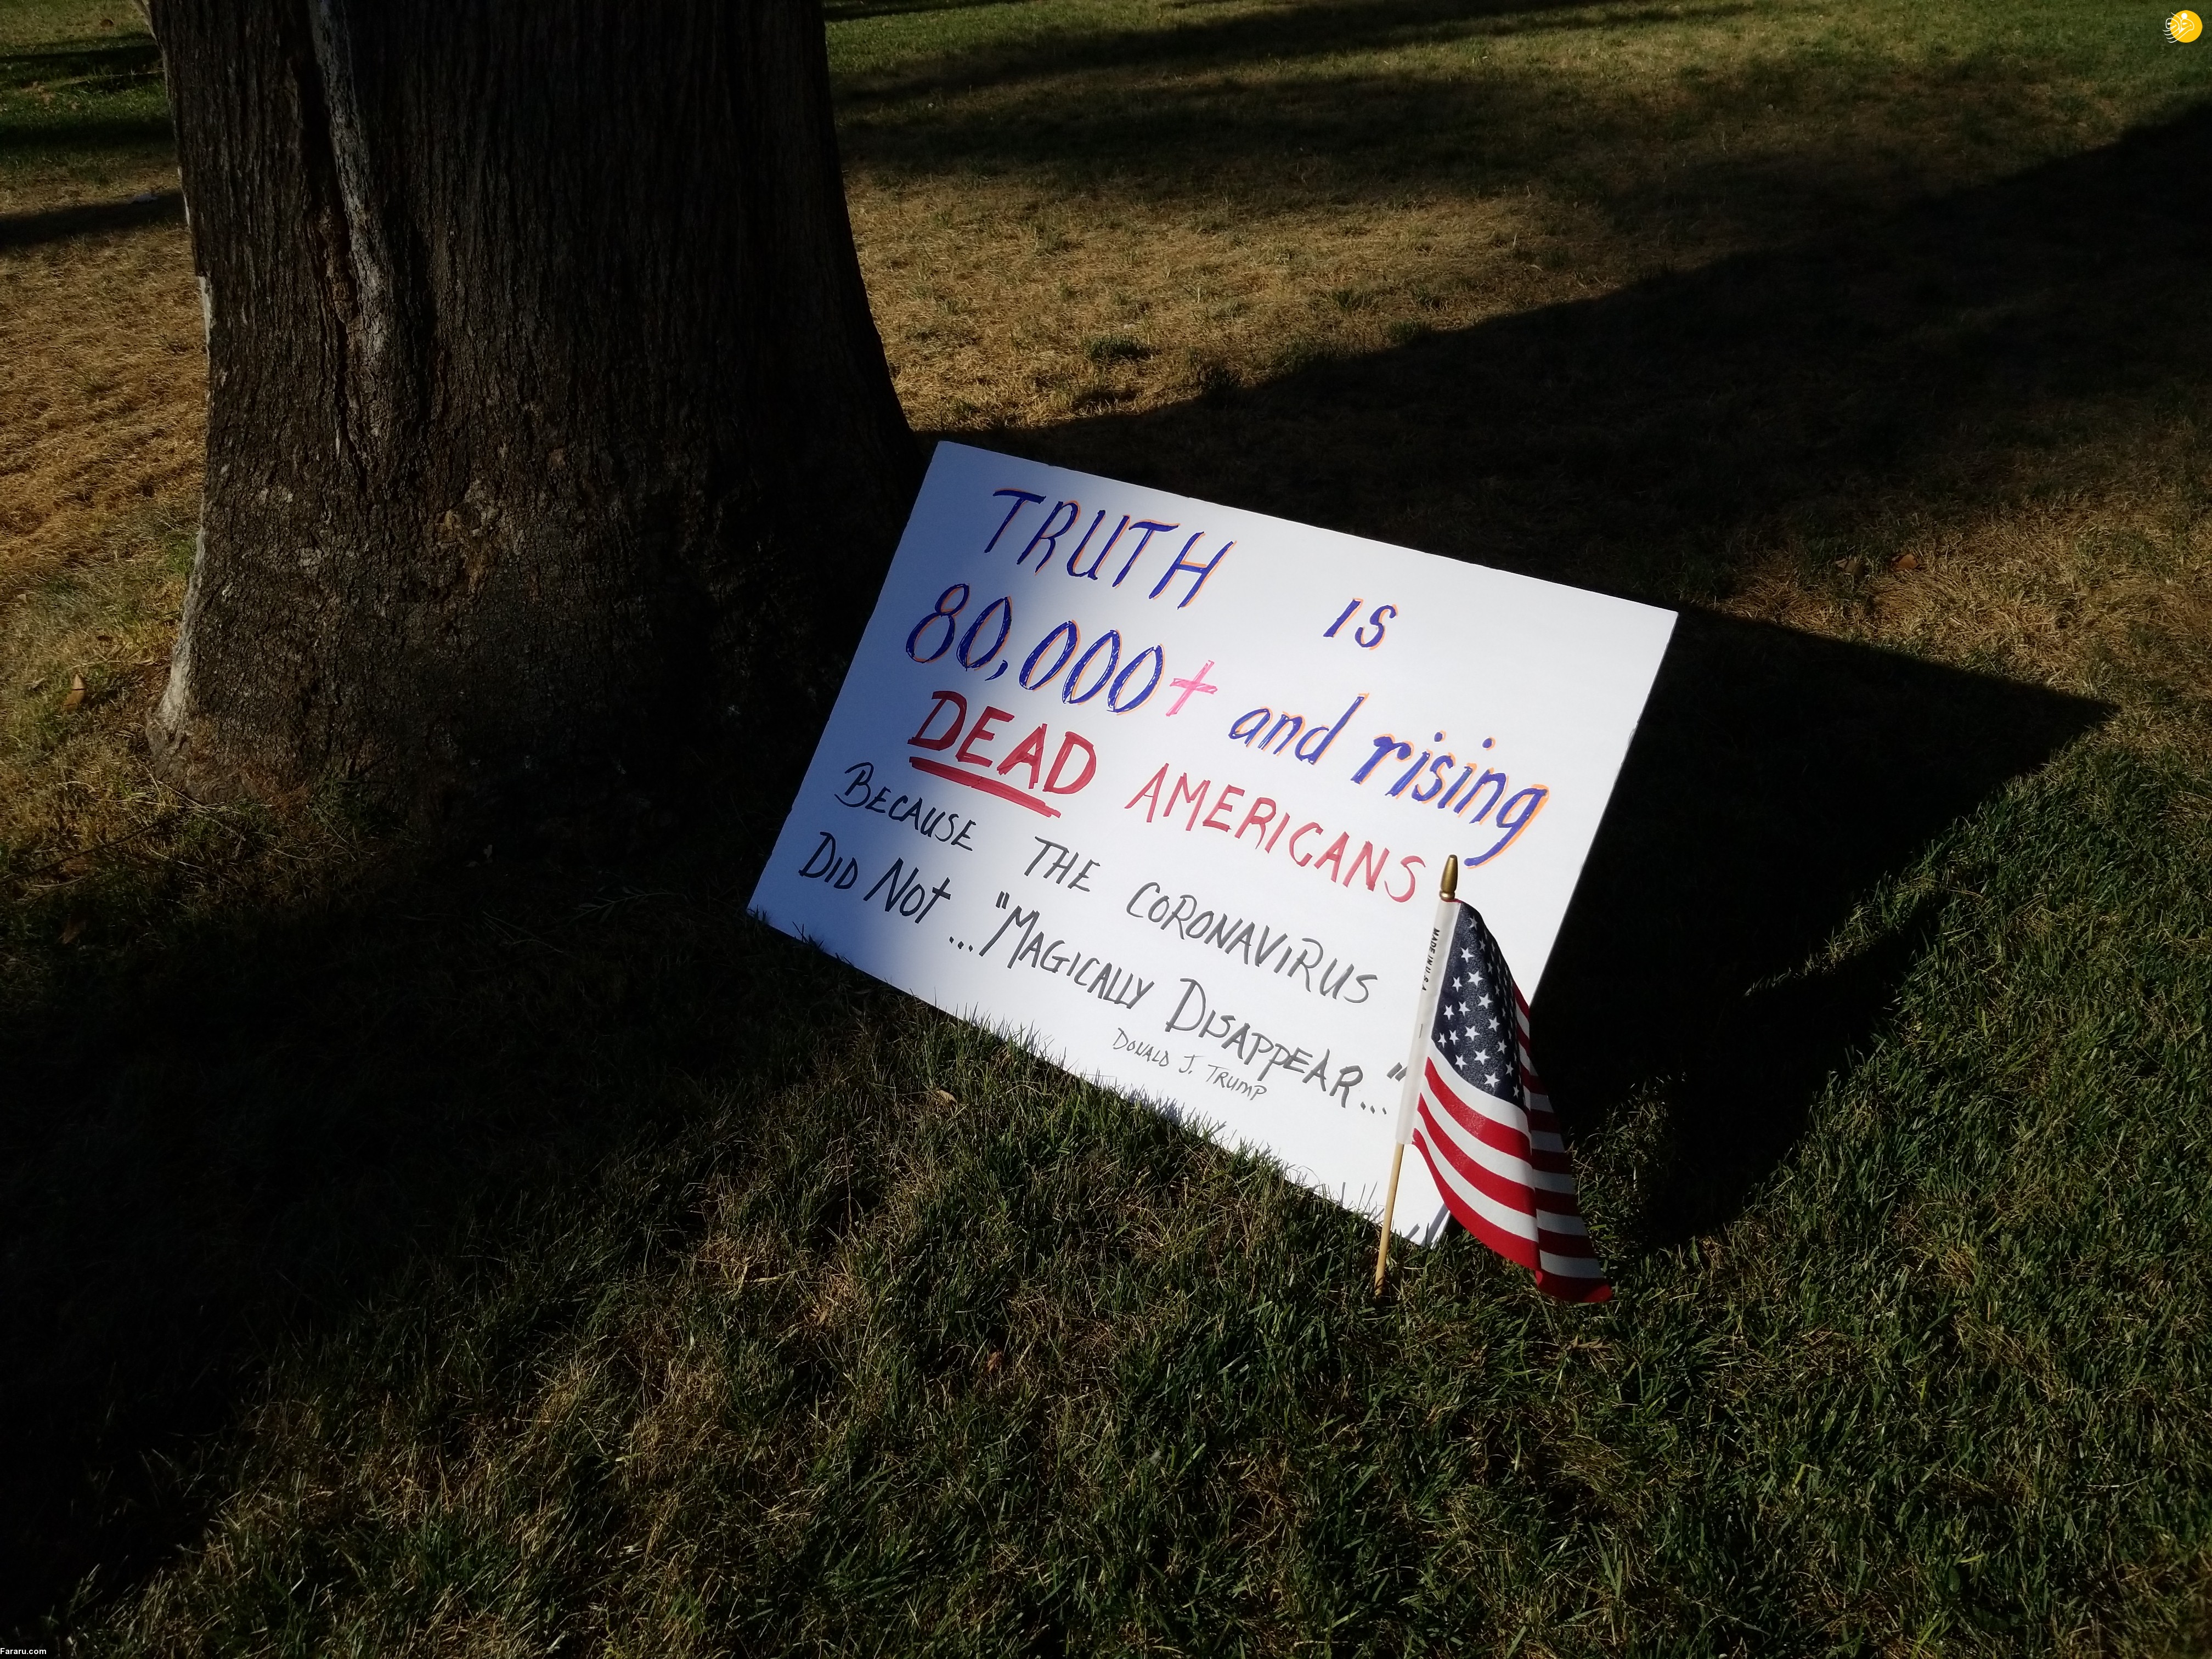 TRUTH IS
80,000+ and rising
DEAD AMERICANS
BECAUSE THE CORONAVIRUS
DID NOT... "MAGICALLY DISAPPEAR..."
DONALD J. TRUMP
MADE IN U.S.A.
Fararu.com